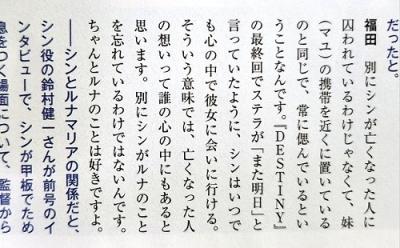 だったと。
福田　別にシンが亡くなった人に
囚われているわけじゃなくて、妹
（マユ）の携帯を近くに置いている
のと同じで、常に偲んでいるとい
うことなんです。『DESTINY』
の最終回でステラが「また明日」と
言っていたように、シンはいつで
も心の中で彼女に会いに行ける。
そういう意味では、亡くなった人
の想いって誰の心の中にもあると
思います。別にシンがルナのこと
を忘れているわけではないんです。
ちゃんとルナのことは好きですよ。
――シンとルナマリアの関係だと、
シン役の鈴村健一さんが前号のイ
ンタビューで、シンが甲板でため
息をつく場面について、監督から